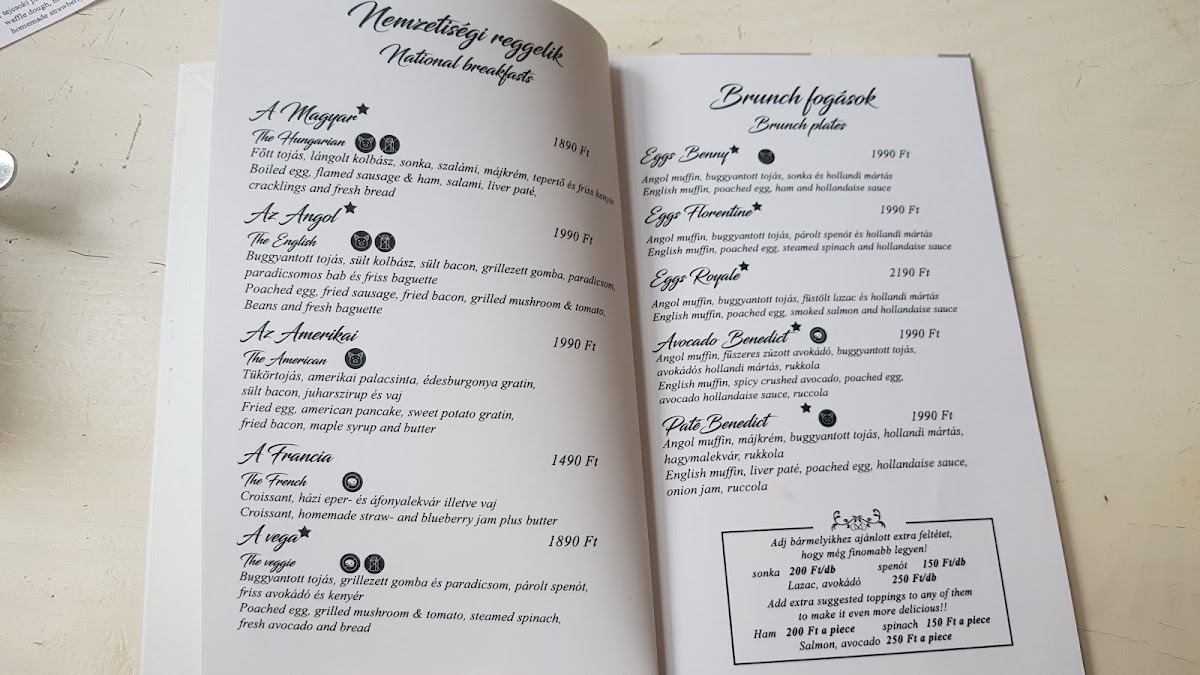 tejcsoki
waffle dough,
homemade strawberry
Nemzetiségi reggelik
National breakfasts
A Magyar
The Hungarian
1890 Ft
Főtt tojás, lángolt kolbász, sonka, szalámi, májkrém, tepertő és friss kenyér
Boiled egg, flamed sausage & ham, salami, liver paté,
cracklings and fresh bread
Az Angol
The English
1990 Ft
Buggyantott tojás, sült kolbász, sült bacon, grillezett gomba, paradicsom,
paradicsomos bab és friss baguette
Poached egg, fried sausage, fried bacon, grilled mushroom & tomato,
Beans and fresh baguette
Az Amerikai
The American
1990 Ft
Tükörtojás, amerikai palacsinta, édesburgonya gratin,
sült bacon, juharszirup és vaj
Fried egg, american pancake, sweet potato gratin,
fried bacon, maple syrup and butter
A Francia
The French
1490 Ft
Croissant, házi eper- és áfonyalekvár illetve vaj
Croissant, homemade straw- and blueberry jam plus butter
A vega
The veggie
1890 Ft
Buggyantott tojás, grillezett gomba és paradicsom, párolt spenót,
friss avokádó és kenyér
Poached egg, grilled mushroom & tomato, steamed spinach,
fresh avocado and bread
Brunch fogások
Brunch plates
Eggs Benny 1990 Ft
Angol muffin, buggyantott tojás, sonka és hollandi mártás
English muffin, poached egg, ham and hollandaise sauce
Eggs Florentine 1990 Ft
Angol muffin, buggyantott tojás, párolt spenót és hollandi mártás
English muffin, poached egg, steamed spinach and hollandaise sauce
Eggs Royale 2190 Ft
Angol muffin, buggyantott tojás, füstölt lazac és hollandi mártás
English muffin, poached egg, smoked salmon and hollandaise sauce
Avocado Benedict 1990 Ft
Angol muffin, fűszeres zúzott avokádó, buggyantott tojás,
avokádós hollandi mártás, rukkola
English muffin, spicy crushed avocado, poached egg,
avocado hollandaise sauce, ruccola
Paté Benedict 1990 Ft
Angol muffin, májkrém, buggyantott tojás, hollandi mártás,
hagymalekvár, rukkola
English muffin, liver paté, poached egg, hollandaise sauce,
onion jam, ruccola
Adj bármelyikhez ajánlott extra feltétet,
hogy még finomabb legyen!
sonka 200 Ft/db spenót 150 Ft/db
Lazac, avokádó 250 Ft/db
Add extra suggested toppings to any of them
to make it even more delicious!!
Ham 200 Ft a piece spinach 150 Ft a piece
Salmon, avocado 250 Ft a piece